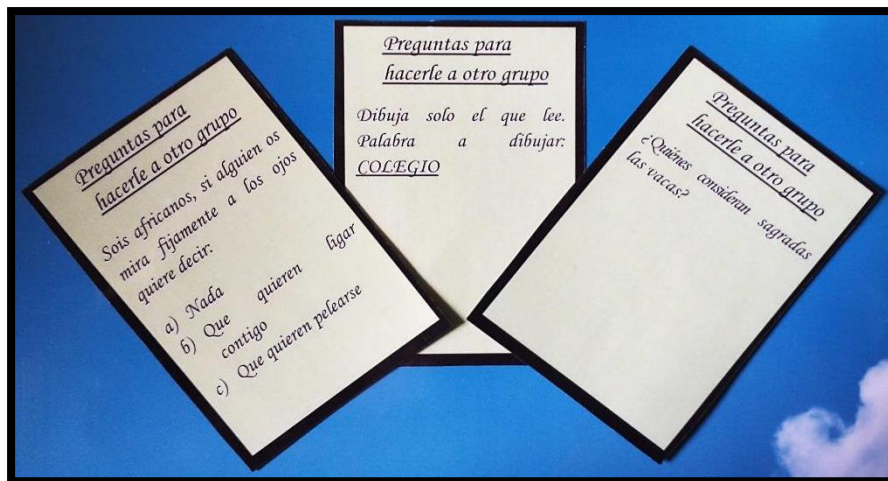 Preguntas para
hacerle a otro grupo
Sois africanos, si alguien os
mira fijamente a los ojos
quiere decir:
a) Nada
b) Que quieren ligar
contigo
c) Que quieren pelearse
Preguntas para
hacerle a otro grupo
Dibuja solo el que lee.
Palabra a dibujar:
COLEGIO
Preguntas para
hacerle a otro grupo
¿Quiénes consideran sagradas
las vacas?